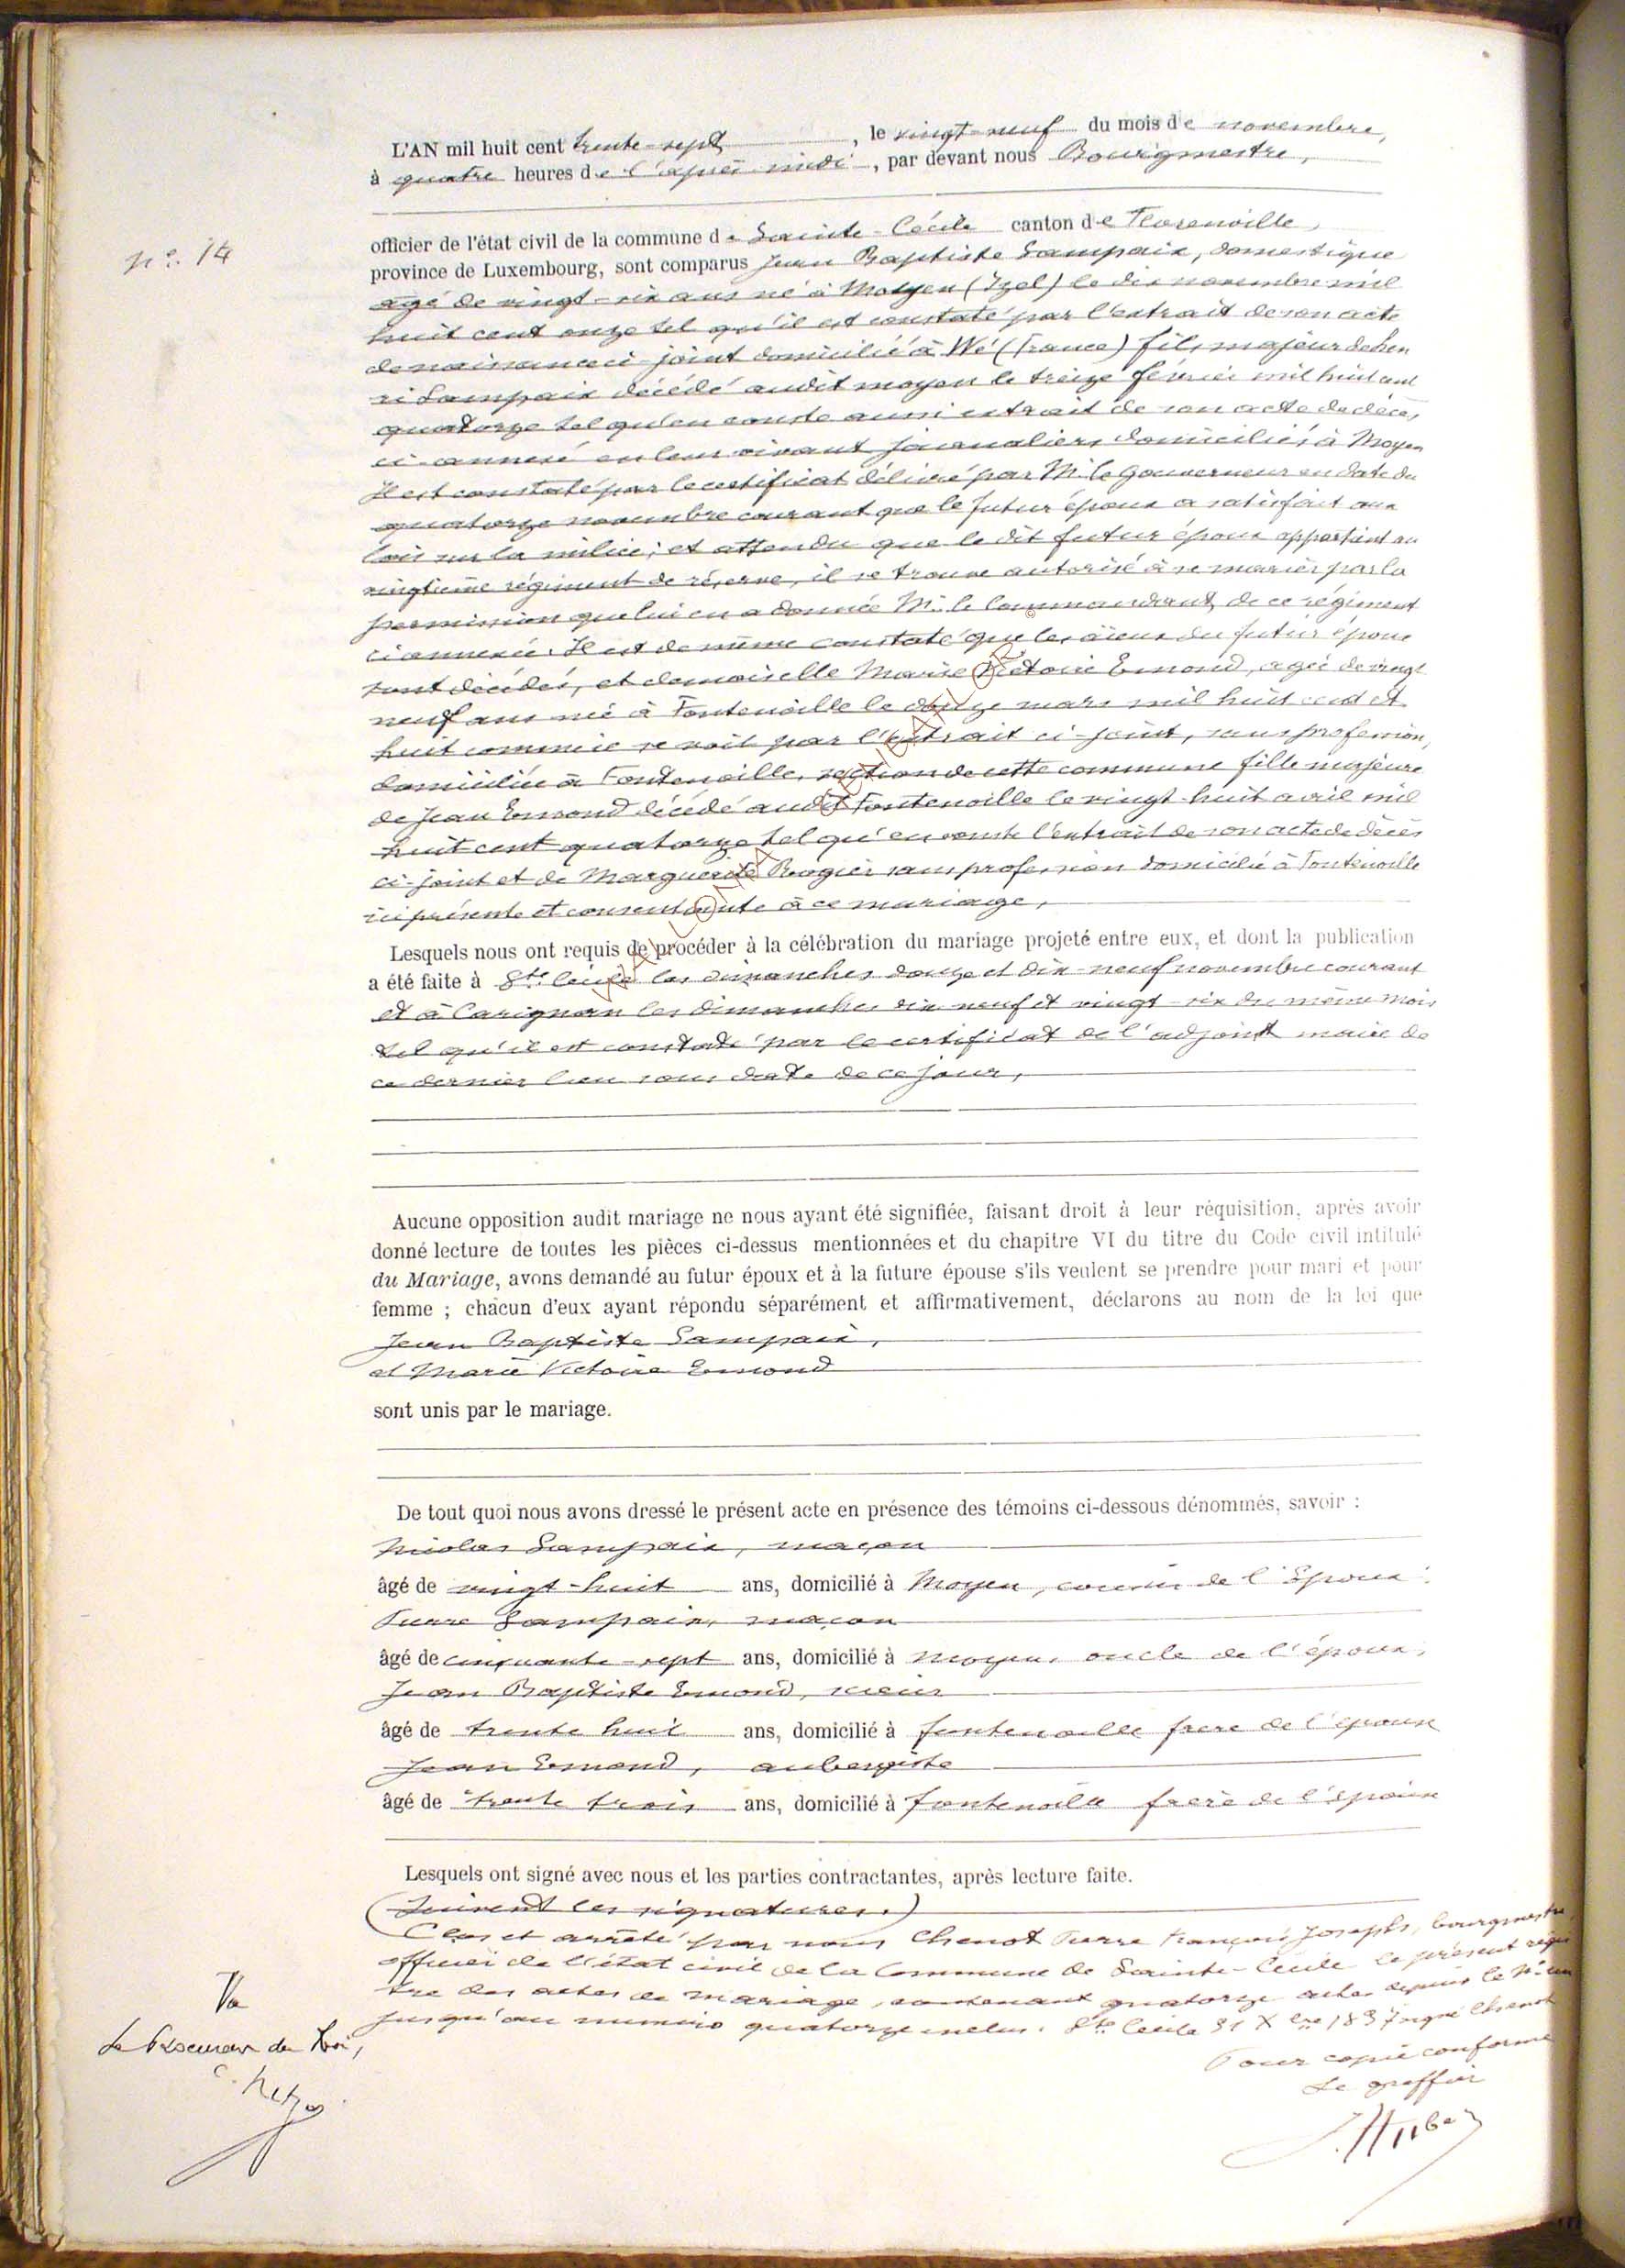 n°. 14
L'AN mil huit cent trente-sept, le vingt-neuf du mois de novembre,
à quatre heures de l'après-midi, par devant nous Bourgmestre,
officier de l'état civil de la commune de Sainte-Cécile canton de Florenville,
province de Luxembourg, sont comparus Jean Baptiste Lampaix, domestique
agé de vingt-six ans né à Moyen (Izel) le dix novembre mil
huit cent onze tel qu'il est constaté par l'extrait de son acte
de naissance ci-joint domicilié à Wé (France) fils majeur de hen
ri Lampaix décédé audit moyen le treize février mil huit cent
quatorze tel qu'en conste aussi extrait de son acte de décès
ci-annexé en leur vivant journaliers domiciliés à Moyen
Il est constaté par le certificat délivré par Mr. le gouverneur en date du
quatorze novembre courant que le futur époux a satisfait aux
lois sur la milice; et attendu que le dit futur époux appartient au
vingtième régiment de réserve, il se trouve autorisé à se marier par la
permission que lui en a donnée Mr. le Commandant de ce régiment
ci annexée. Il est de même constaté que les aïeux du futur époux
sont décédés, et demoiselle Marie Victoire Emond, agée de vingt
neuf ans née à Fontenoille le douze mars mil huit cent et
huit comme il se voit par l'extrait ci-joint, sans profession,
domiciliée à Fontenoille, section de cette commune fille majeure
de Jean Emond décédé audit Fontenoille le vingt-huit avril mil
huit cent quatorze tel qu'en conste l'extrait de son acte de décès
ci-joint et de Marguerite Rogier sans profession domiciliée à Fontenoille
ici présente et consentante à ce mariage,
Lesquels nous ont requis de procéder à la célébration du mariage projeté entre eux, et dont la publication
a été faite à Ste Cécile les dimanches douze et dix-neuf novembre courant
et à Carignan les dimanches dix-neuf et vingt-six du même mois
tel qu'il est constaté par le certificat de l'adjoint maire de
ce dernier lieu sous date de ce jour,
Aucune opposition audit mariage ne nous ayant été signifiée, faisant droit à leur réquisition, après avoir
donné lecture de toutes les pièces ci-dessus mentionnées et du chapitre VI du titre du Code civil intitulé
du Mariage, avons demandé au futur époux et à la future épouse s'ils veulent se prendre pour mari et pour
femme ; chacun d'eux ayant répondu séparément et affirmativement, déclarons au nom de la loi que
Jean Baptiste Lampaix,
et Marie Victoire Emond
sont unis par le mariage.
De tout quoi nous avons dressé le présent acte en présence des témoins ci-dessous dénommés, savoir :
Nicolas Lampaix, maçon
âgé de vingt-huit ans, domicilié à Moyen, cousin de l'Epoux
Pierre Lampaix, maçon
âgé de cinquante-sept ans, domicilié à moyen, oncle de l'époux,
Jean Baptiste Emond, scieur
âgé de trente huit ans, domicilié à fontenoille frere de l'epouse
Jean Emond, aubergiste
âgé de trente trois ans, domicilié à fontenoille frère de l'épouse
Lesquels ont signé avec nous et les parties contractantes, après lecture faite.
(Suivent les signatures.)
Clos et arrêté par nous Chenot Pierre François Joseph, bourgmestre,
officier de l'état civil de la Commune de Sainte-Cécile le présent regis
tre des actes de mariage, contenant quatorze actes depuis le n° un
jusqu'au numero quatorze inclus. Ste Cécile 31 Xbre 1837 signé Chenot
Pour copie conforme
Le greffier
Vu
Le Procureur du Roi,